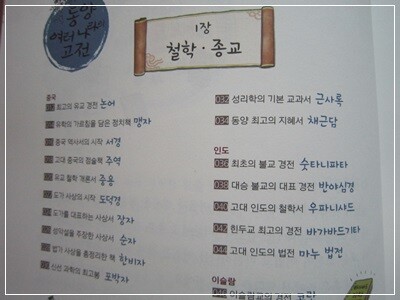 동양
여러 나라의
고전
1장
철학·종교
중국
최고의 유교 경전 논어
유학의 가르침을 담은 정치책 맹자
중국 역사서의 시작 서경
고대 중국의 점술책 주역
유교 철학 개론서 중용
도가 사상의 시작 도덕경
도가를 대표하는 사상서 장자
성악설을 주장한 사상서 순자
법가 사상을 총정리한 책 한비자
신선 과학의 최고봉 포박자
032 성리학의 기본 교과서 근사록
034 동양 최고의 지혜서 채근담
인도
036 최초의 불교 경전 숫타니파타
038 대승 불교의 대표 경전 반야심경
040 고대 인도의 철학서 우파니샤드
042 힌두교 최고의 경전 바가바드기타
044 고대 인도의 법전 마누 법전
이슬람
046 이슬람교의 경전 코란